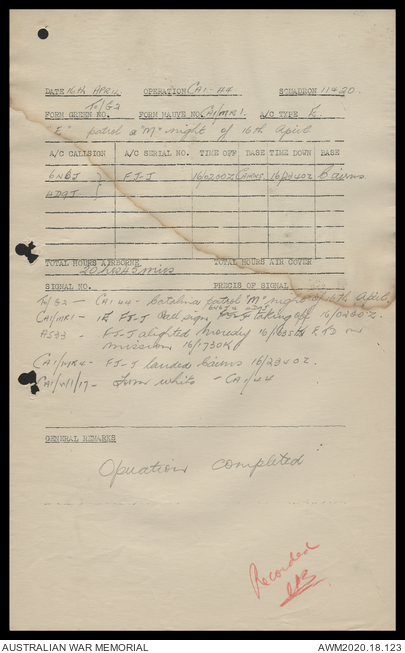 DATE 16th APRIL OPERATION CA1-44 SQUADRON 11 & 20.
FORM GREEN NO. To/G2 FORM MAUVE NO. CA1/MR1. A/C TYPE E.
"E" patrol a "M" night of 16th April
A/C CALLSIGN A/C SERIAL NO. TIME OFF BASE TIME DOWN BASE
6NBJ FJ-J 16/0200Z Cairns 16/2240Z Cairns
4D9J
TOTAL HOURS AIRBORNE TOTAL HOURS AIR COVER
20 hrs 45 mins
SIGNAL NO. PRECIS OF SIGNAL
To/G2 — CA1 44 - Catalina patrol "M" night of 16th April.
CA1/MR1 - 1E FJ-J call sign taking off 16/0200Z.
A533 - FJ-J alighted 16/0350 on
mission 16/1730K
CA1/MR4 - FJ-J landed Cairns 16/2240Z.
CA1/W1/17 - Form white - CA1/44
GENERAL REMARKS
Operation completed
Recorded
AUSTRALIAN WAR MEMORIAL AWM2020.18.123